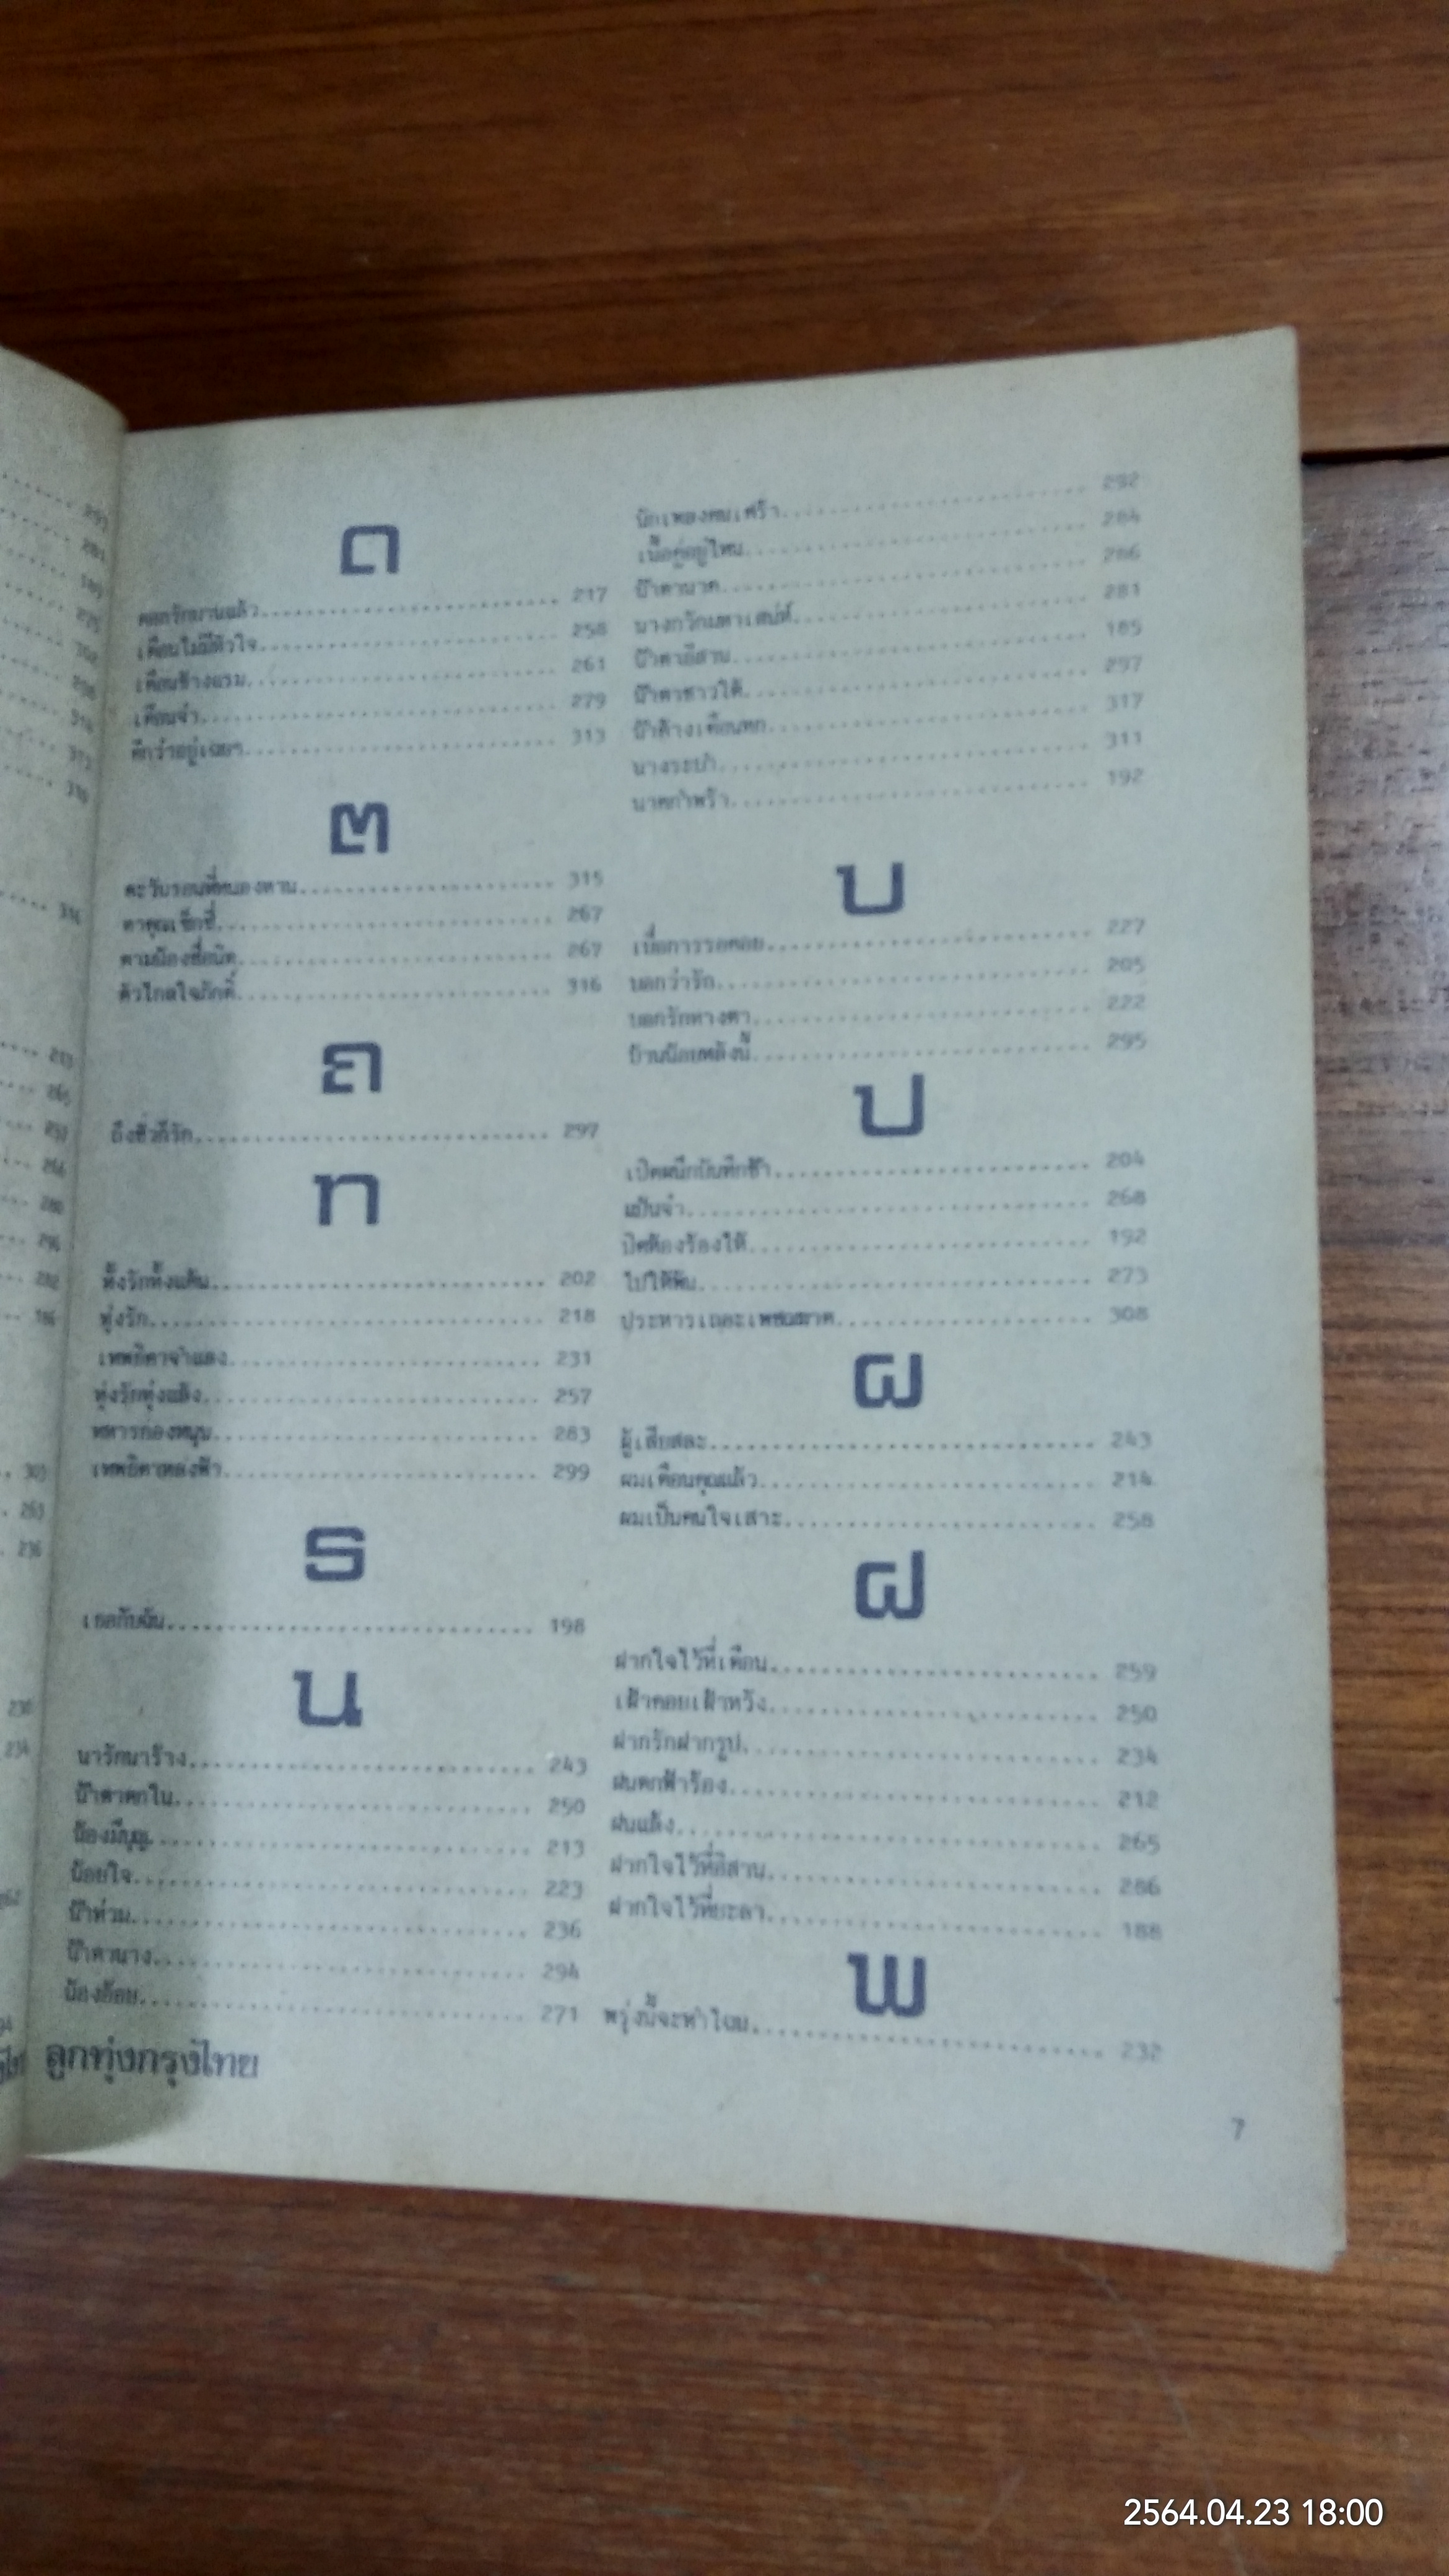 ด
ดอกรักบานแล้ว 217
เดือนไม่มีหัวใจ 258
เดือนข้างแรม 261
เดือนจ๋า 279
ดีกว่าอยู่เฉยๆ 313
ต
ตะวันรอนที่หนองหาน 315
267
ตามน้องชื่อนิด 267
ตัวไกลใจภักดิ์ 316
ถ
ถึงชั่วก็รัก 297
ท
ทั้งรักทั้งแค้น 202
ทุ่งรัก 218
เทพธิดาจำแลง 231
ทุ่งรักทุ่งแล้ง 257
ทหารกองหนุน 283
เทพธิดาหลงฟ้า 299
ธ
เธอกับฉัน 198
น
นารักนาร้าง 243
น้ำตาตกใน 250
น้องมีบุญ 213
น้อยใจ 223
น้ำท่วม 236
น้ำตานาง 294
น้องอ้อย 271
ลูกทุ่งกรุงไทย
นักเพลงคนเศร้า 292
เนื้อคู่อยู่ไหน 284
น้ำตานาค 286
นางกวักมหาเสน่ห์ 281
น้ำตาอีสาน 185
น้ำตาสาวใต้ 297
น้ำค้างเดือนหก 317
นางระบำ 311
นาคกำพร้า 192
บ
เบื่อการรอคอย 227
บอกว่ารัก 205
บอกรักทางตา 222
บ้านน้อยหลังนี้ 295
ป
เปิดผนึกบันทึกช้ำ 204
แป้นจ๋า 268
ปิดห้องร้องไห้ 192
273
308
ผ
ผู้เสียสละ 243
ผมเตือนคุณแล้ว 214
ผมเป็นคนใจเสาะ 258
ฝ
ฝากใจไว้ที่เดือน 259
เฝ้าคอยเฝ้าหวัง 250
ฝากรักฝากรูป 234
ฝนตกฟ้าร้อง 212
ฝนแล้ง 265
ฝากใจไว้ที่อีสาน 286
ฝากใจไว้ที่ยะลา 188
พ
พรุ่งนี้จะทำไฉน 232
7
2564.04.23 18:00